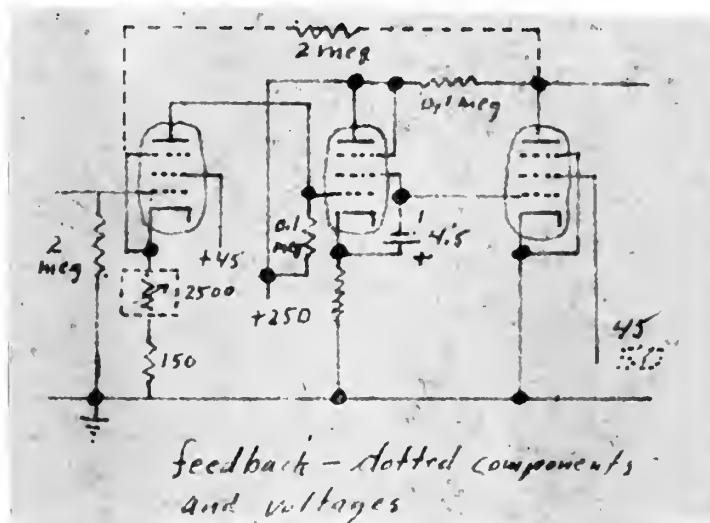 2 meg
0.1 meg
2
meg
0.1
meg
4.5
+
+45
2500
+250
150
45
50
feedback - dotted components
and voltages